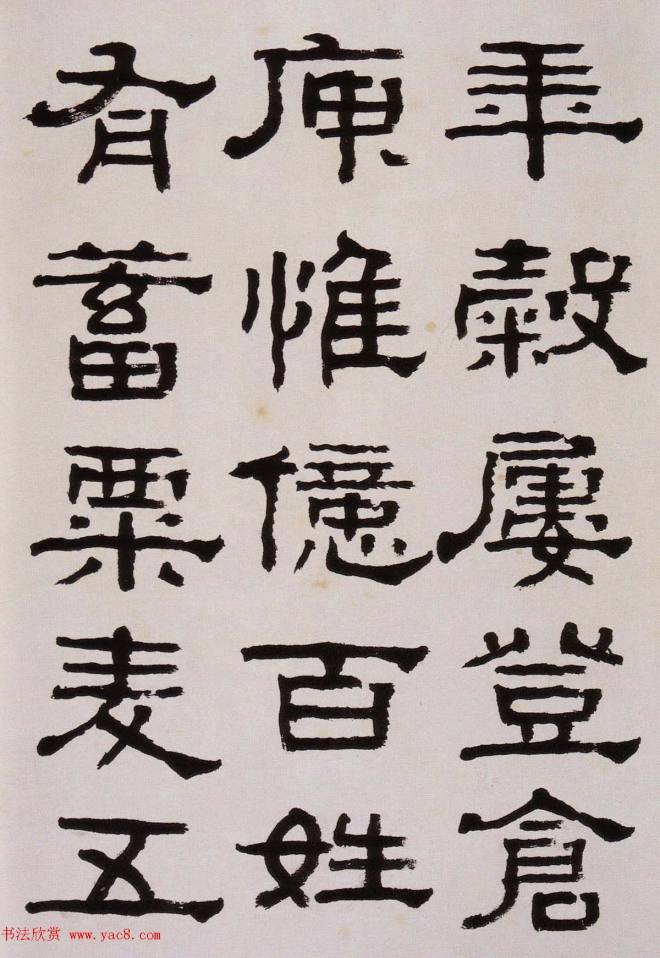 年穀屢登倉
庾惟億百姓
有蓄粟麥五
书法欣赏 www.yac8.com